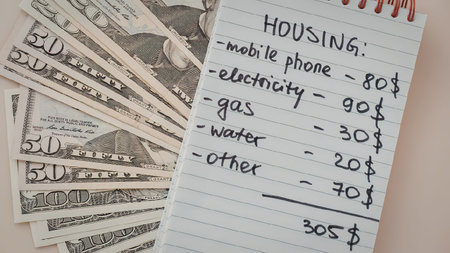 HOUSING:
- mobile phone - 80$
- electricity - 90$
- gas - 30$
- water - 20$
- other - 70$
305$
50
50
50
50
50
100
100